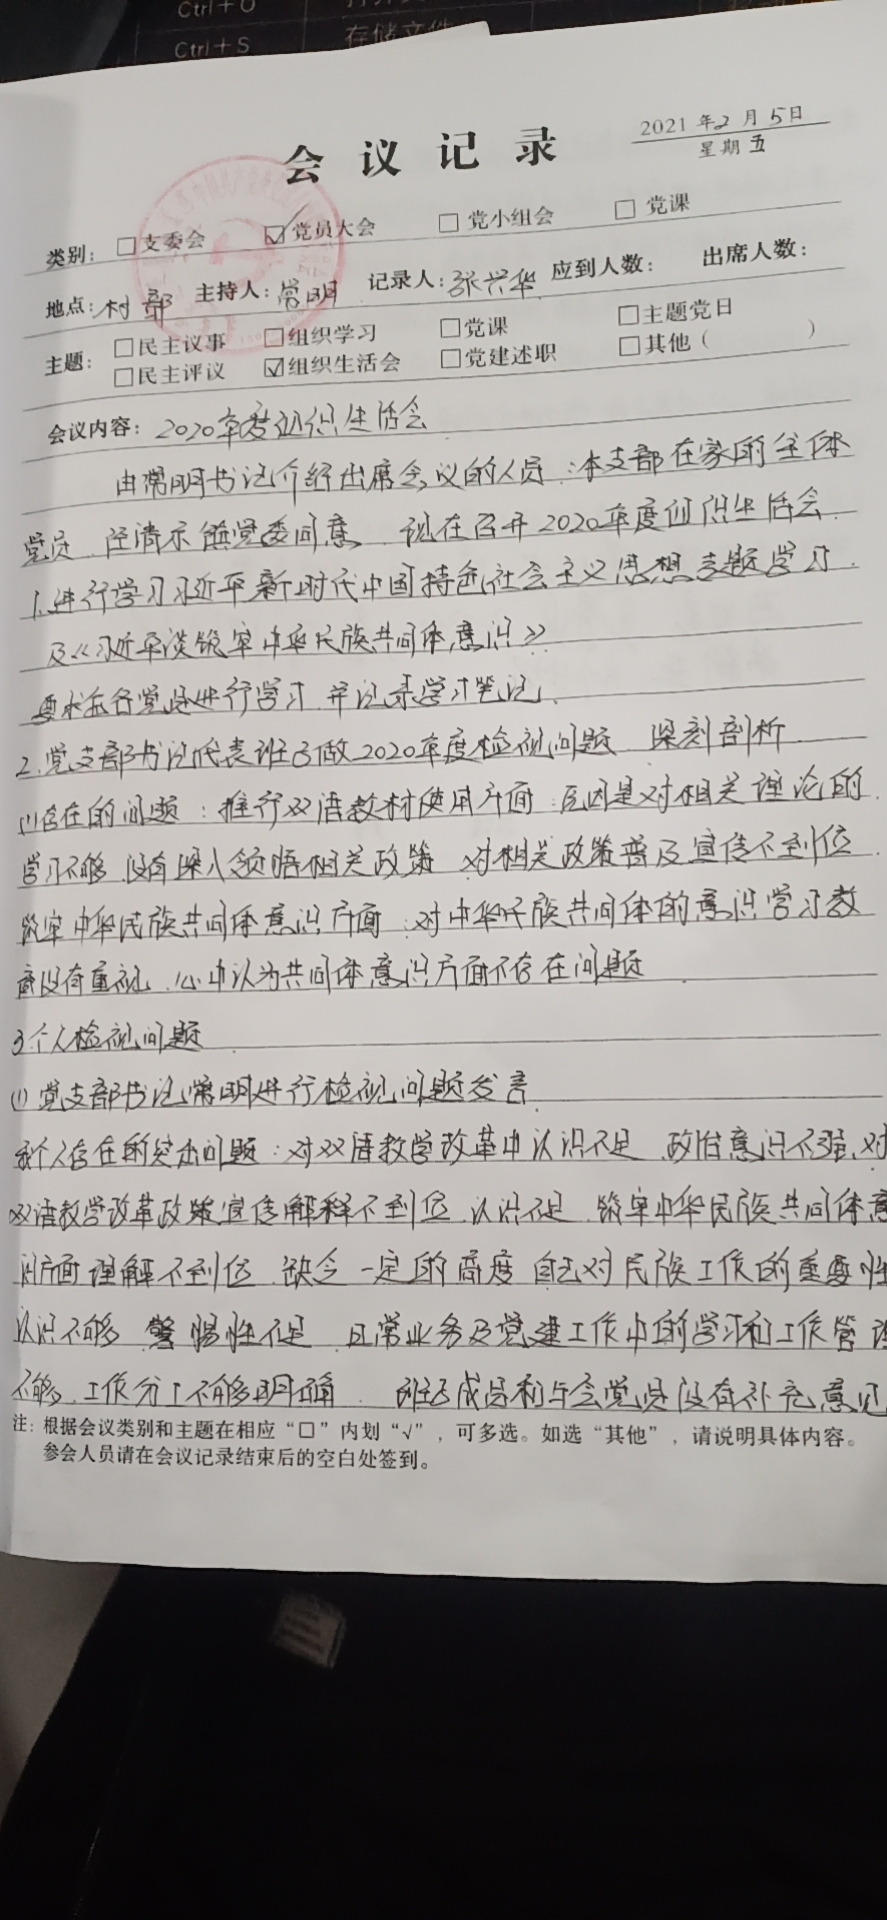 Ctrl+O
Ctrl+S 存储文件
会议记录
2021年2月5日
星期五
类别: □支委会 ☑党员大会 □党小组会 □党课
地点:村部 主持人:常明 记录人:张兴华 应到人数: 出席人数:
主题: □民主议事 □组织学习 □党课 □主题党日
□民主评议 ☑组织生活会 □党建述职 □其他( )
会议内容: 2020年度组织生活会
由常明书记介绍出席会议的人员:本支部在家的全体
党员 经请示镇党委同意 现在召开2020年度组织生活会
1.进行学习习近平新时代中国特色社会主义思想专题学习
及《习近平谈筑牢中华民族共同体意识》
要求各党员进行学习 并记录学习笔记
2.党支部书记代表班子做2020年度检视问题 深刻剖析
(1)存在的问题:推行双语教材使用方面:原因是对相关理论的
学习不够 没有深入领悟相关政策 对相关政策普及宣传不到位
筑牢中华民族共同体意识方面:对中华民族共同体的意识学习教
育没有重视 心中认为共同体意识方面不存在问题
3个人检视问题
(1)党支部书记常明进行检视问题发言
我个人存在的突出问题:对双语教学改革中认识不足 政治意识不强、对
双语教学改革政策宣传解释不到位 认识不足 筑牢中华民族共同体意
识方面理解不到位 缺乏一定的高度 自己对民族工作的重要性
认识不够 警惕性不足 日常业务及党建工作中的学习和工作管理
不够、工作分工不够明确 班子成员和与会党员没有补充意见
注: 根据会议类别和主题在相应“□”内划“√”,可多选。如选“其他”,请说明具体内容。
参会人员请在会议记录结束后的空白处签到。